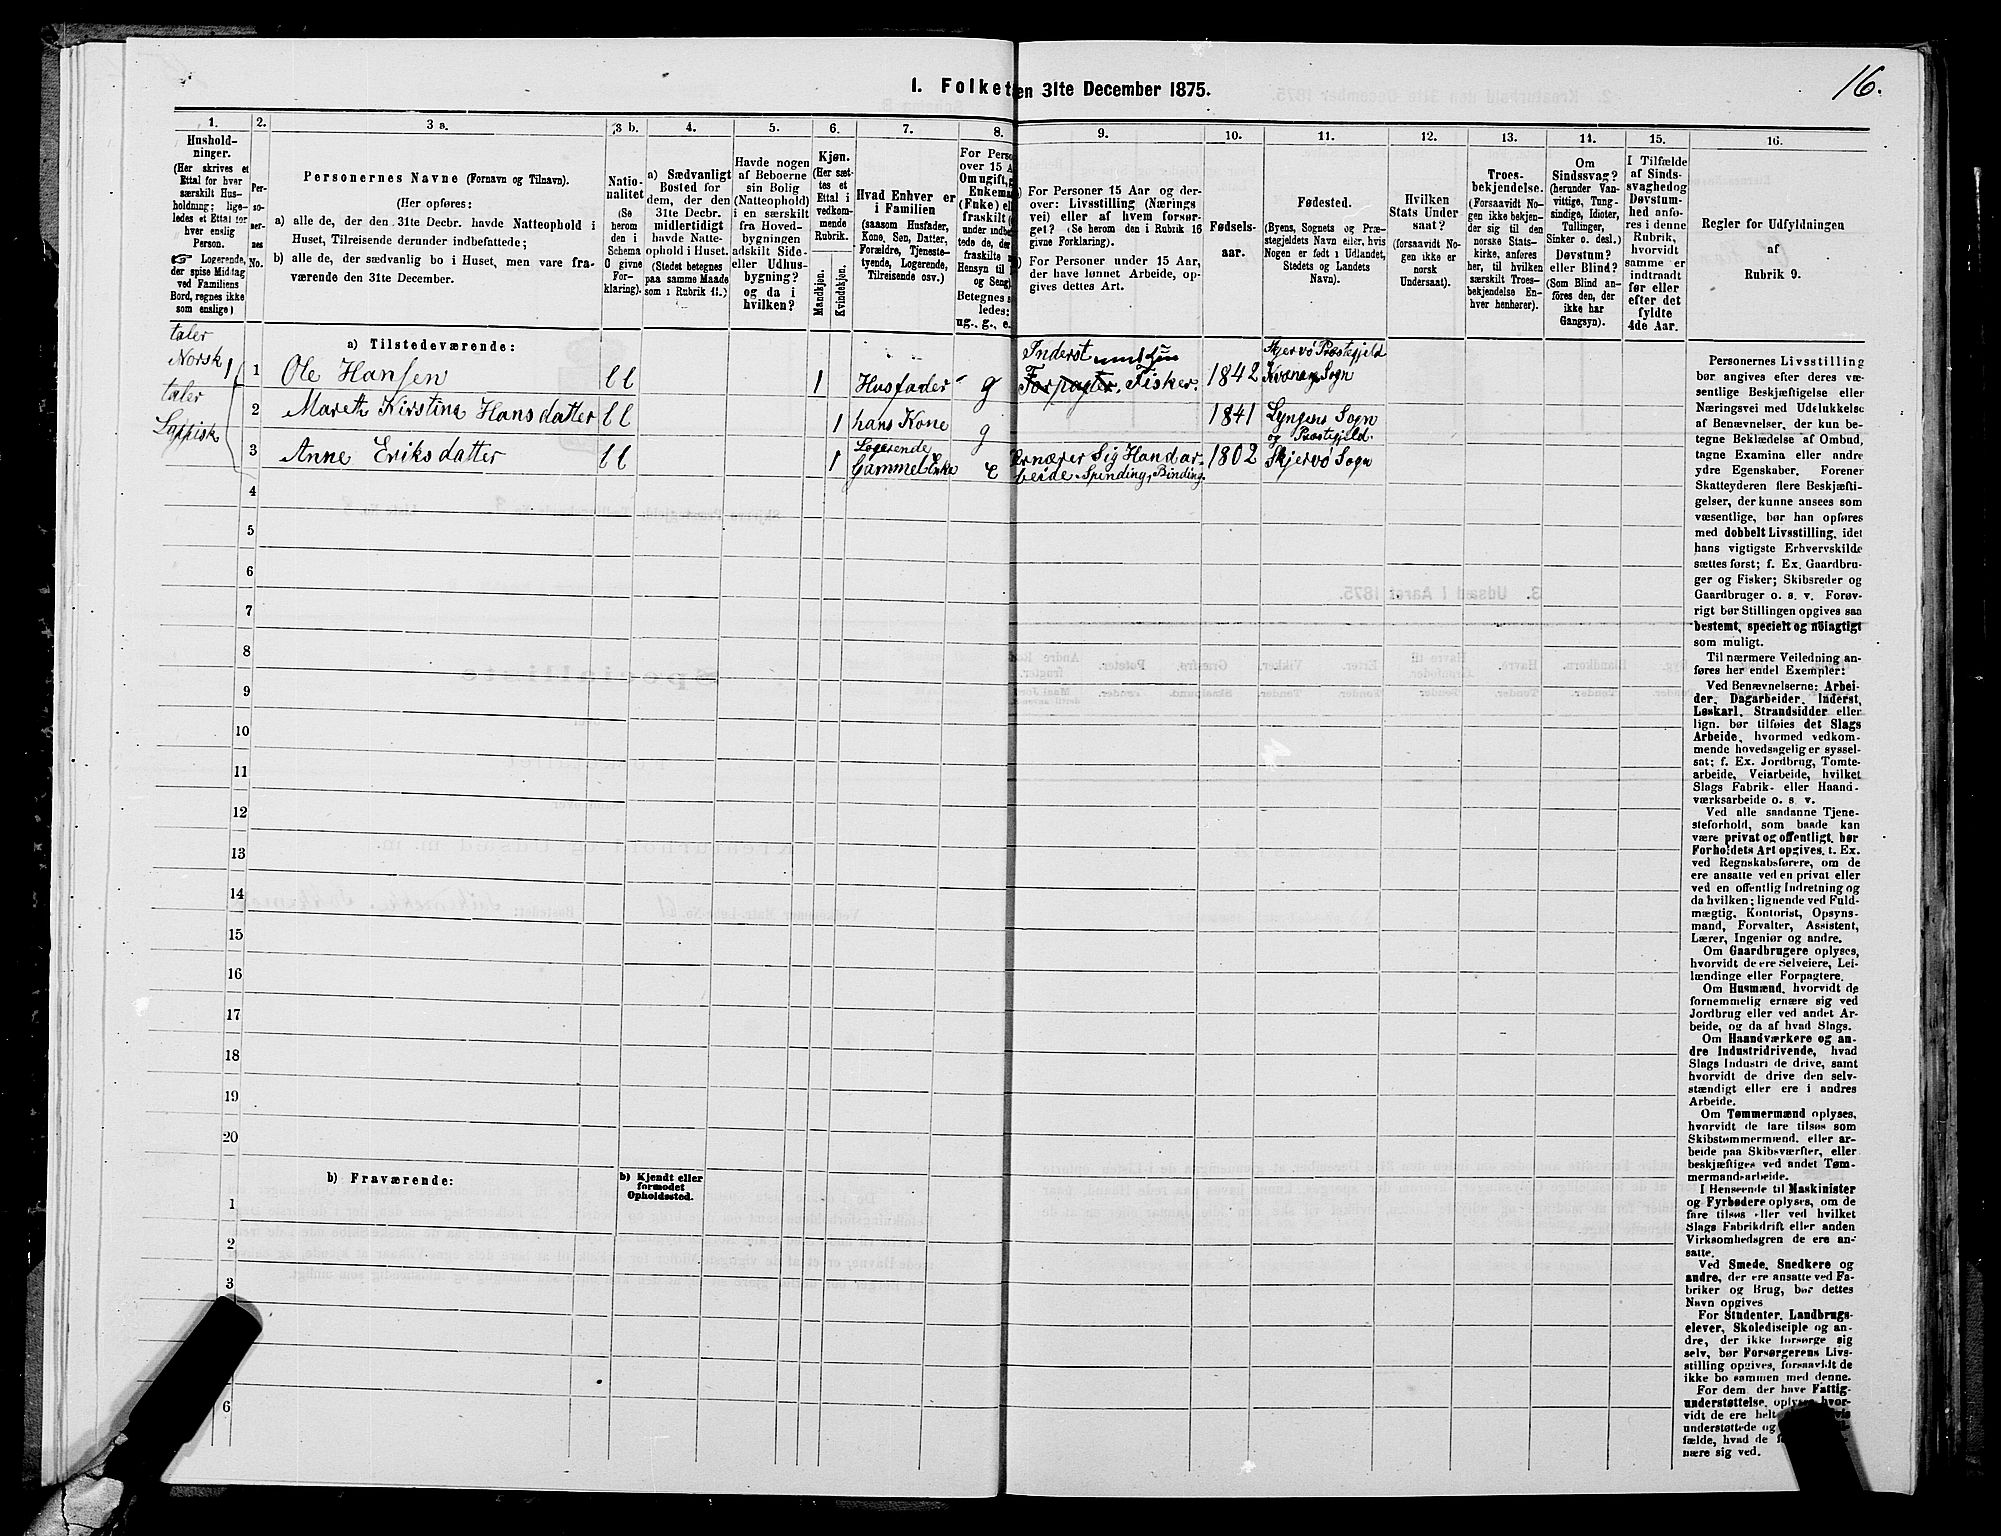 16.
I. Folket
en 31te December 1875.
1.
2.
3 a.
3 b.
4.
5.
6.
7.
8.
9.
10.
11.
12.
13.
14.
15.
16.
Hushold-
ninger.
(Her skrives et
Ettal for hver
særskilt Hus-
holdning; lige-
ledes et Ettal for
hver enslig
Person.
Logerende,
der spise Middag
ved Familiens
Bord, regnes ikke
som enslige)
Per-
so-
ner-
nes
No.
Personernes Navne (Fornavn og Tilnavn).
(Her opføres:
a) alle de, der den 31te Decbr. havde Natteophold i
Huset, Tilreisende derunder indbefattede;
b) alle de, der sædvanlig bo i Huset, men vare fra-
værende den 31te December.
Natio-
nalitet
(Se
herom
den i
Schema
O givne
For-
klaring).
a) Sædvanligt
Bosted for
dem, der den
31te Decbr.
midlertidigt
havde Natte-
ophold i Huset.
(Stedet betegnes
paa samme Maade
som i Rubrik 11.)
Havde nogen
af Beboerne
sin Bolig
(Natteophold)
i en særskilt
fra Hoved-
bygningen
adskilt Side-
eller Udhus-
bygning?
og da i
hvilken?
Kjøn.
(Her sæt-
tes et
Ettal i
vedkom-
mende
Rubrik.
Mandkjøn.
Kvindekjøn.
Hvad Enhver er
i Familien
(saasom Husfader,
Kone, Søn, Datter,
Forældre, Tjeneste-
tyende, Logerende,
Tilreisende osv.)
For Perso
over 15 A
Om ugift, g
Enkema
(Enke) ell
fraskilt (
under indb
tede de, der
fraskilte
Hensyn til
og Seng)
Betegnes s
ledes:
ug., g., e.
) For Personer 15 Aar og der-
over: Livsstilling (Nærings
vei) eller af hvem forsør-
get? (Se herom den i Rubrik 16
givne Forklaring).
) For Personer under 15 Aar,
der have lønnet Arbeide, op-
gives dettes Art.
Fødsels-
aar.
Fødested.
(Byens, Sognets og Præ-
stegjeldets Navn eller, hvis
Nogen er født i Udlandet,
Stedets og Landets
Navn).
Hvilken
Stats Under
saat?
(forsaavidt No-
gen ikke er
norsk
Undersaat).
Troes-
bekjendelse.
(Forsaavidt No-
gen ikke bekjen-
der sig til den
norske Stats-
kirke, anføres
her, til hvilken
særskilt Troes-
bekjendelse En-
hver henhører).
Om
Sindssvag?
(herunder Van-
vittige, Tung-
sindige, Idioter,
Tullinger,
Sinker o. desl.)
Døvstum?
eller Blind?
(Som Blind an-
føres den, der
ikke har
Gangsyn).
I Tilfælde
af Sinds-
svaghed og
Døvstum-
hed anfø-
res i denne
Rubrik,
hvorvidt
samme er
indtraadt
før eller
efter det
fyldte
4de Aar.
Regler for Udfyldningen
af
Rubrik 9.
a) Tilstedeværende:
taler
Norsk 1
1 Ole Hansen ll 1 Husfader g
Inderst
Forpagter. Fisker. 1842
Skjervø Præstegjeld
Kvænang Sogn
taler
Lappisk
2 Mareth Kirstina Hansdatter ll 1 hans Kone g 1841 Lyngens Sogn
og Præstegjeld.
3 Anne Eriksdatter ll 1
Logerende
Gammel Enke E
ernærer Sig Handar-
beide. Spinding, Binding. 1802 Skjervø Sogn
4
5
6
7
8
9
10
11
12
13
14
15
16
17
18
19
20
b) Fraværende:
b) Kjendt eller
formodet
Opholdssted.
1
2
3
6
Personernes Livsstilling
bør angives efter deres væ-
sentlige Beskjæftigelse eller
Næringsvei med Udelukkelse
af Benævnelser, der kun be-
tegne Beklædelse af Ombud,
tagne Examina eller andre
ydre Egenskaber. Forener
Skatteyderen flere Beskjæfti-
gelser, der kunne ansees som
væsentlige, bør han opføres
med dobbelt Livsstilling, idet
hans vigtigste Erhvervskilde
sættes først; f. Ex. Gaardbru-
ger og Fisker; Skibsreder og
Gaardbruger o. s. v. Forøv-
rigt bør Stillingen opgives saa
bestemt, specielt og nöiagtigt
som muligt.
Til nærmere Veiledning an-
føres her endel Exempler:
Ved Benævnelserne: Arbei-
der, Dagarbeider, Inderst,
Løskarl, Strandsidder eller
lign. bør tilføies det Slags
Arbeide, hvormed vedkom-
mende hovedsagelig er syssel-
sat; f. Ex. Jordbrug, Tomte-
arbeide, Veiarbeide, hvilket
Slags Fabrik- eller Haand-
værksarbeide o. s. v.
Ved alle saadanne Tjene-
steforhold, som baade kan
være privat og offentligt, bør
Forholdets Art opgives, t. Ex.
ved Regnskabsførere, om de
ere ansatte ved en privat eller
ved en offentlig Indretning og
da hvilken; lignende ved Fuld-
mægtig, Kontorist, Opsyns-
mand, Forvalter, Assistent,
Lærer, Ingeniør og andre.
Om Gaardbrugere oplyses,
hvorvidt de ere Selveiere, Lei-
lændinge eller Forpagtere.
Om Husmænd, hvorvidt de
fornemmelig ernære sig ved
Jordbrug eller ved andet Ar-
beide, og da af hvad Slags.
Om Haandværkere og an-
dre Industridrivende, hvad
Slags Industri de drive, samt
hvorvidt de drive den selv-
stændigt eller ere i andres
Arbeide.
Om Tømmermænd oplyses,
hvorvidt de fare tilsøs som
Skibstømmermænd, eller ar-
beide paa Skibsværfter, eller
beskjæftiges ved andet Tøm-
mermandsarbeide.
I Henseende til Maskinister
og Fyrbødere oplyses, om de
fare tilsøs eller ved hvilket
Slags Fabrikdrift eller anden
Virksomhedsgren de ere an-
satte.
Ved Smede, Snedkere og
andre, der ere ansatte ved Fa-
briker og Brug, bør dettes
Navn opgives
For Studenter, Landbrugs-
elever, Skoledisciple og an-
dre, der ikke forsørge sig
selv, bør Forsørgerens Livs-
stilling opgives, forsaavidt de
ikke bo sammen med denne.
For dem, der have Fattig-
understøttelse, oplyses, hvor-
vidt de ere helt
understøttede og
fælde, hvad de
nære sig ved.